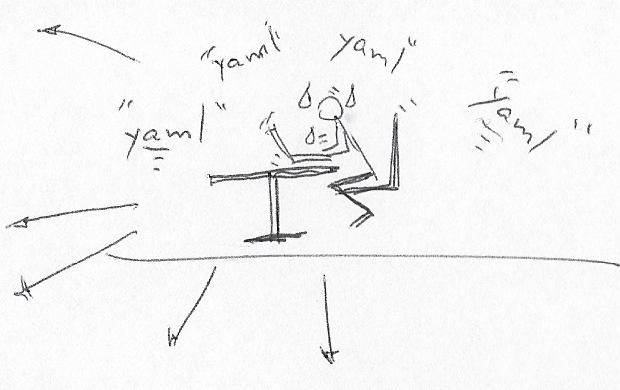 "yaml"
yaml"
"yaml"
yaml"